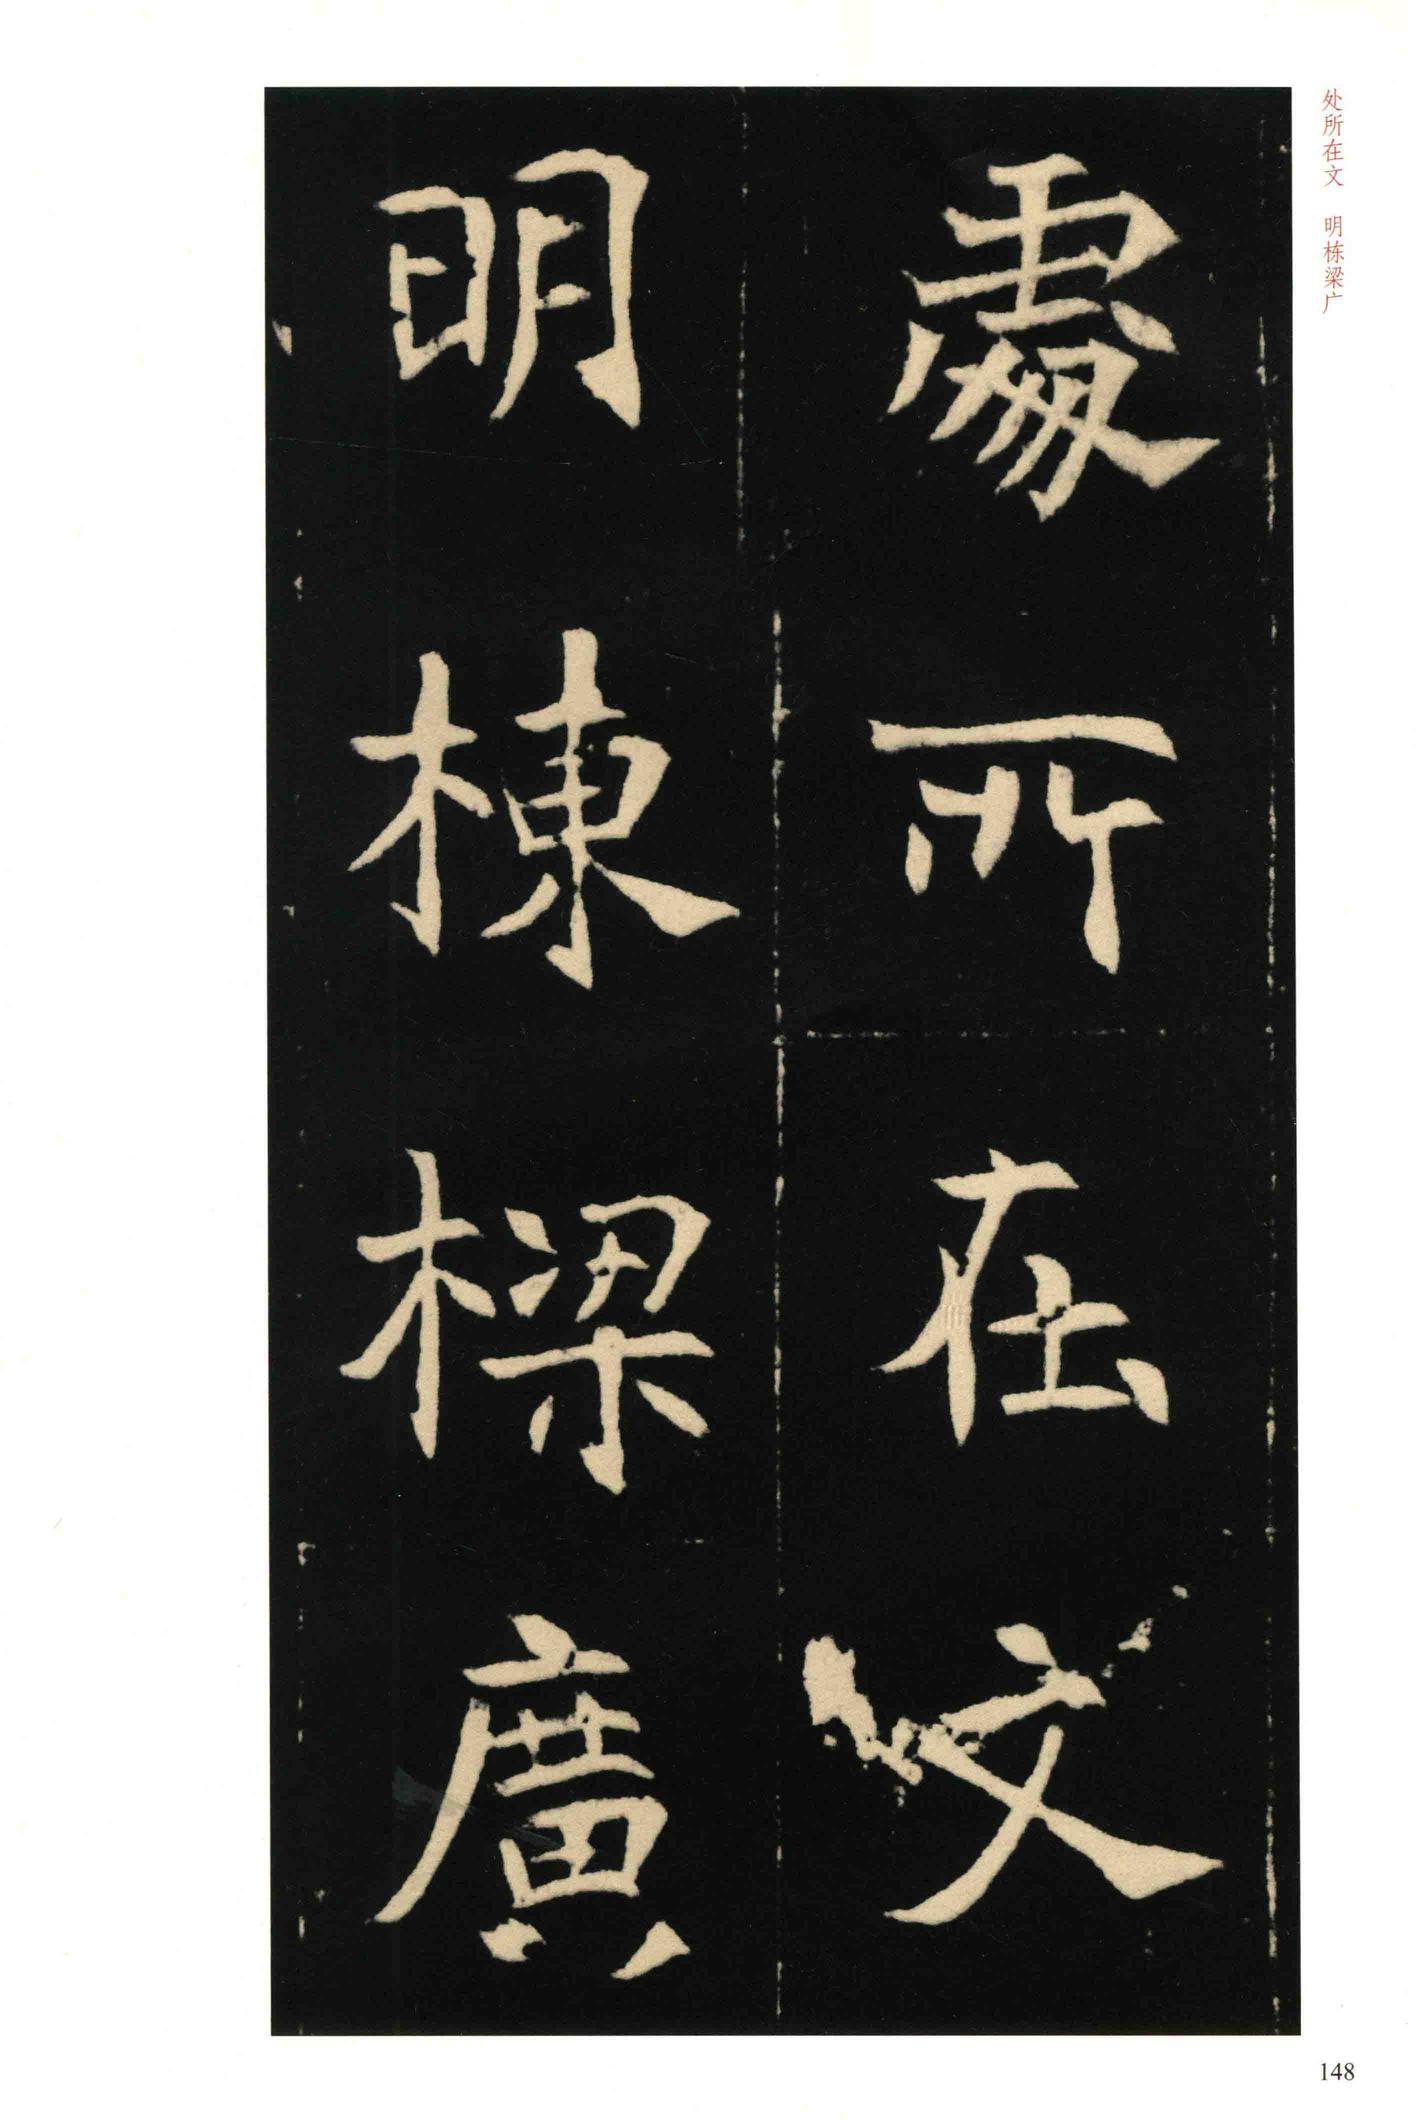 处所在文　明栋梁广
處所在文
明棟樑廣
148